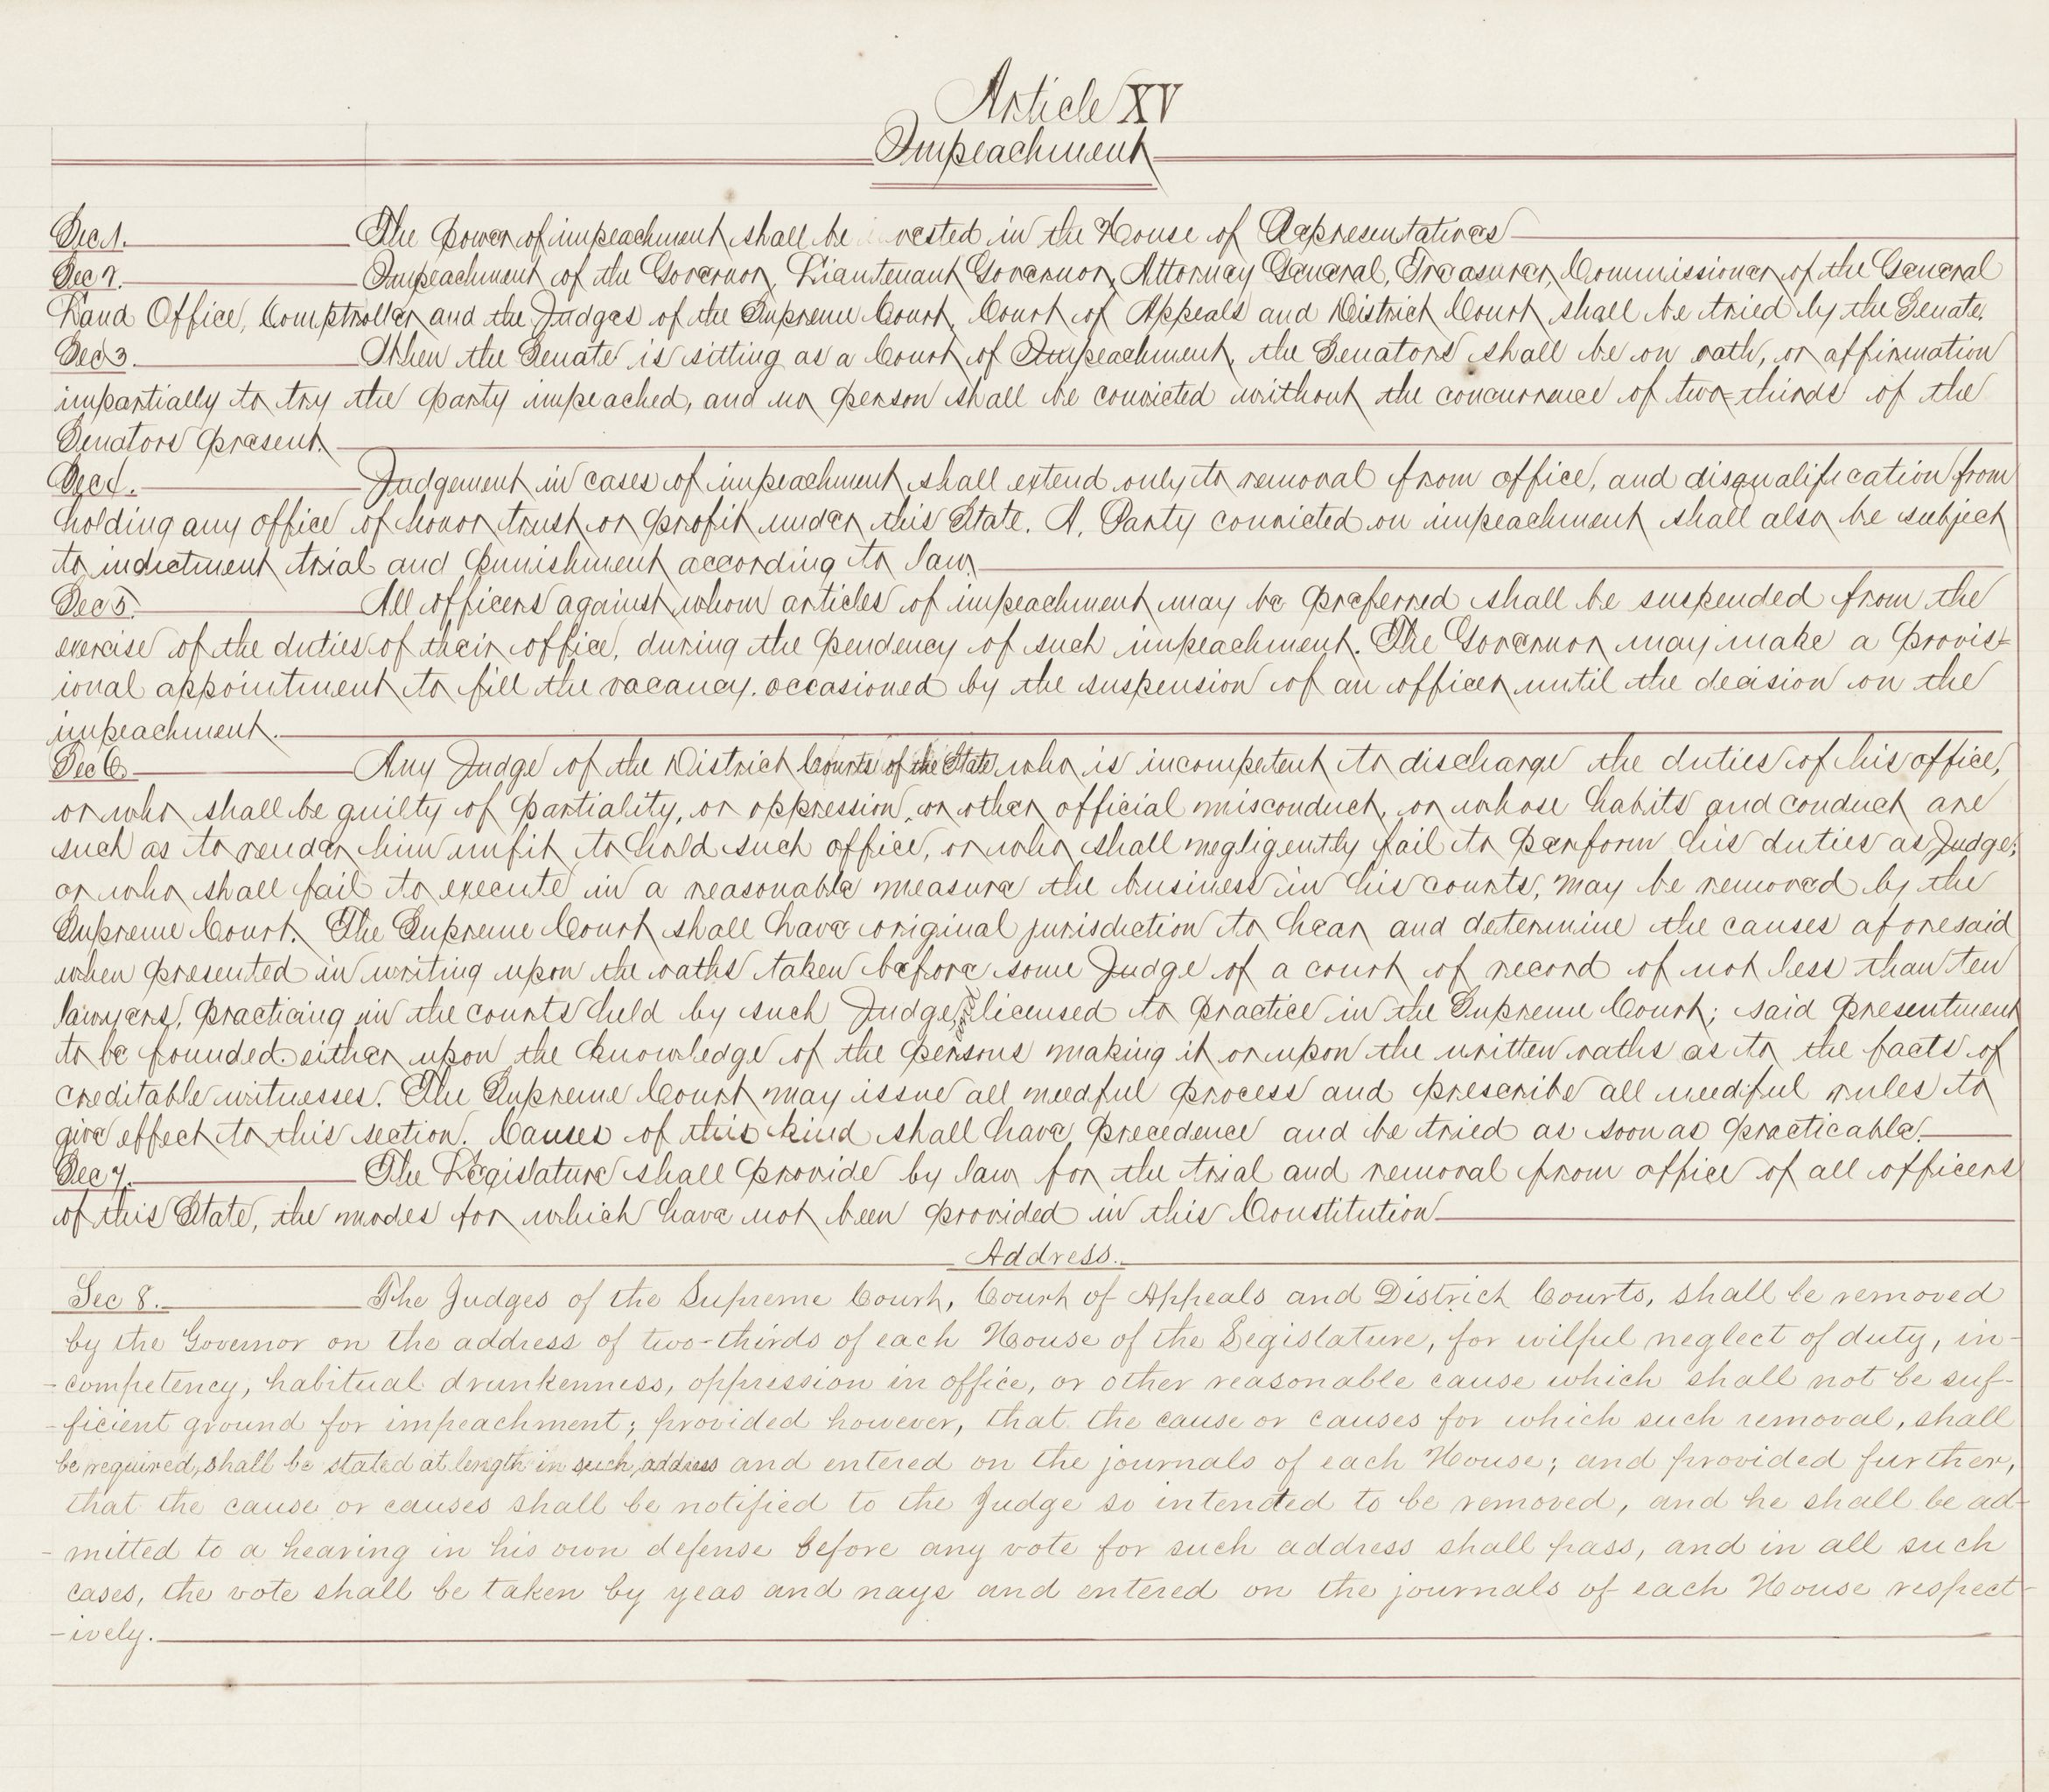 Article XV
Impeachment
Sec 1. The power of impeachment shall be vested in the House of Representatives
Sec 2. Impeachment of the Governor, Lieutenant Governor, Attorney General, Treasurer, Commissioner of the General
Land Office, Comptroller and the Judges of the Supreme Court, Court of Appeals and District Court shall be tried by the Senate.
Sec 3. When the Senate is sitting as a Court of Impeachment, the Senators shall be on oath, or affirmation
impartially to try the party impeached, and no person shall be convicted without the concurrence of two-thirds of the
Senators present.
Sec 4. Judgement in cases of impeachment shall extend only to removal from office, and disqualification from
holding any office of honor trust or profit under this State. A. Party convicted on impeachment shall also be subject
to indictment trial and punishment according to law
Sec 5. All officers against whom articles of impeachment may be preferred shall be suspended from the
exercise of the duties of their office, during the pendency of such impeachment. The Governor may make a provis-
ional appointment to fill the vacancy occasioned by the suspension of an officer until the decision on the
impeachment.
Sec 6. Any Judge of the District Courts of the State who is incompetent to discharge the duties of his office,
or who shall be guilty of partiality, or oppression, or other official misconduct, or whose habits and conduct are
such as to render him unfit to hold such office, or who shall negligently fail to perform his duties as Judge;
or who shall fail to execute in a reasonable measure the business in his courts, may be removed by the
Supreme Court. The Supreme Court shall have original jurisdiction to hear and determine the causes aforesaid
when presented in writing upon the oaths taken before some Judge of a court of record of not less than ten
lawyers, practicing in the courts held by such Judge, and licensed to practice in the Supreme Court; said presentment
to be founded either upon the knowledge of the persons making it or upon the written oaths as to the facts of
creditable witnesses. The Supreme Court may issue all needful process and prescribe all needful rules to
give effect to this section. Causes of this kind shall have precedence and be tried as soon as practicable.
Sec 7. The Legislature shall provide by law for the trial and removal from office of all officers
of this State, the modes for which have not been provided in this Constitution
Address.
Sec 8. The Judges of the Supreme Court, Court of Appeals and District Courts, shall be removed
by the Governor on the address of two-thirds of each House of the Legislature, for wilful neglect of duty, in-
-competency, habitual drunkenness, oppression in office, or other reasonable cause which shall not be suf-
-ficient ground for impeachment; provided however, that the cause or causes for which such removal, shall
be required, shall be stated at length in such address and entered on the journals of each House; and provided further,
that the cause or causes shall be notified to the Judge so intended to be removed, and he shall be ad-
-mitted to a hearing in his own defense before any vote for such address shall pass, and in all such
cases, the vote shall be taken by yeas and nays and entered on the journals of each House respect-
-ively.